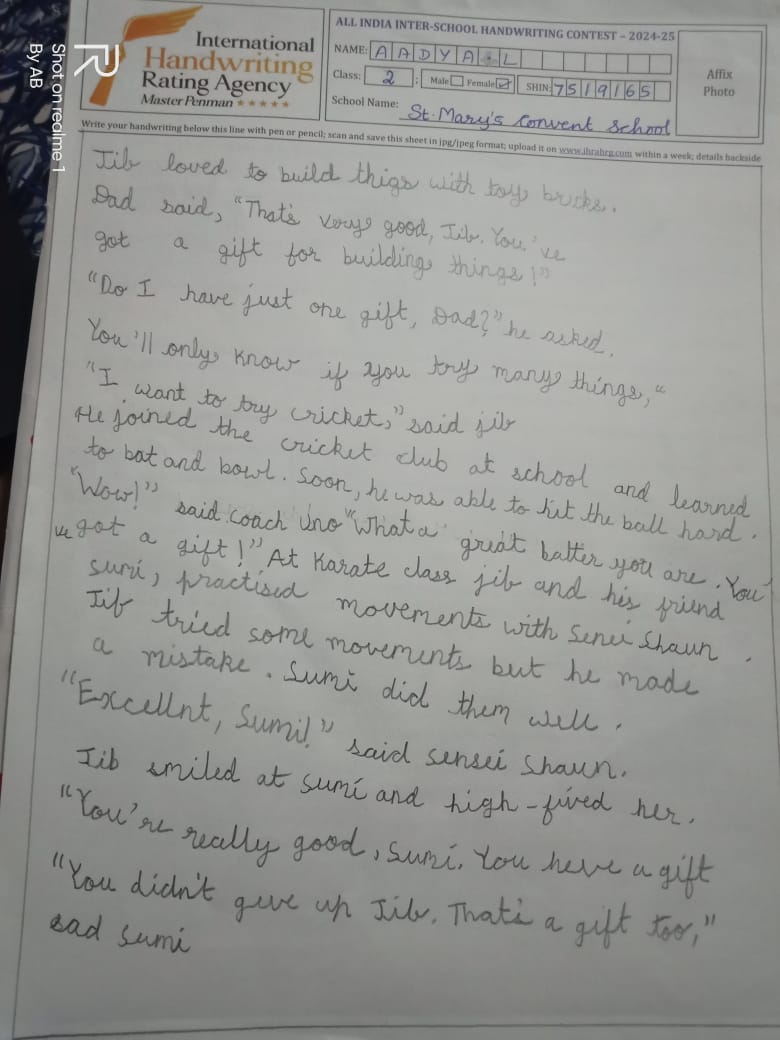 International
Handwriting
Rating Agency
Master Penman ★★★★★
ALL INDIA INTER-SCHOOL HANDWRITING CONTEST – 2024-25
NAME: AADYA L
Class: 2 : Male Female SHIN: 7519165
School Name: St. Mary's Convent School
Affix
Photo
Write your handwriting below this line with pen or pencil; scan and save this sheet in jpg/jpeg format; upload it on www.ihrahrg.com within a week; details backside
Jib loved to build thigs with toy bricks.
Dad said, "That's very good, Jib. You've
got a gift for building things!"
"Do I have just one gift, Dad?" he asked.
You'll only know if you try many things,"
"I want to try cricket," said jib
He joined the cricket club at school and learned
to bat and bowl. Soon, he was able to hit the ball hard.
"Wow!" said coach Uno "What a great batter you are. You'
ve got a gift!" At Karate class jib and his friend
sumi, practised movements with Senei Shaun.
Jib tried some movements but he made
a mistake. Sumi did them well.
"Excellnt, Sumi!" said Sensei Shaun.
Jib smiled at sumi and high-fived her.
"You're really good, Sumi. You heve a gift
"You didn't geve up Jib. That's a gift too,"
sad sumi
Shot on realme 1
By AB